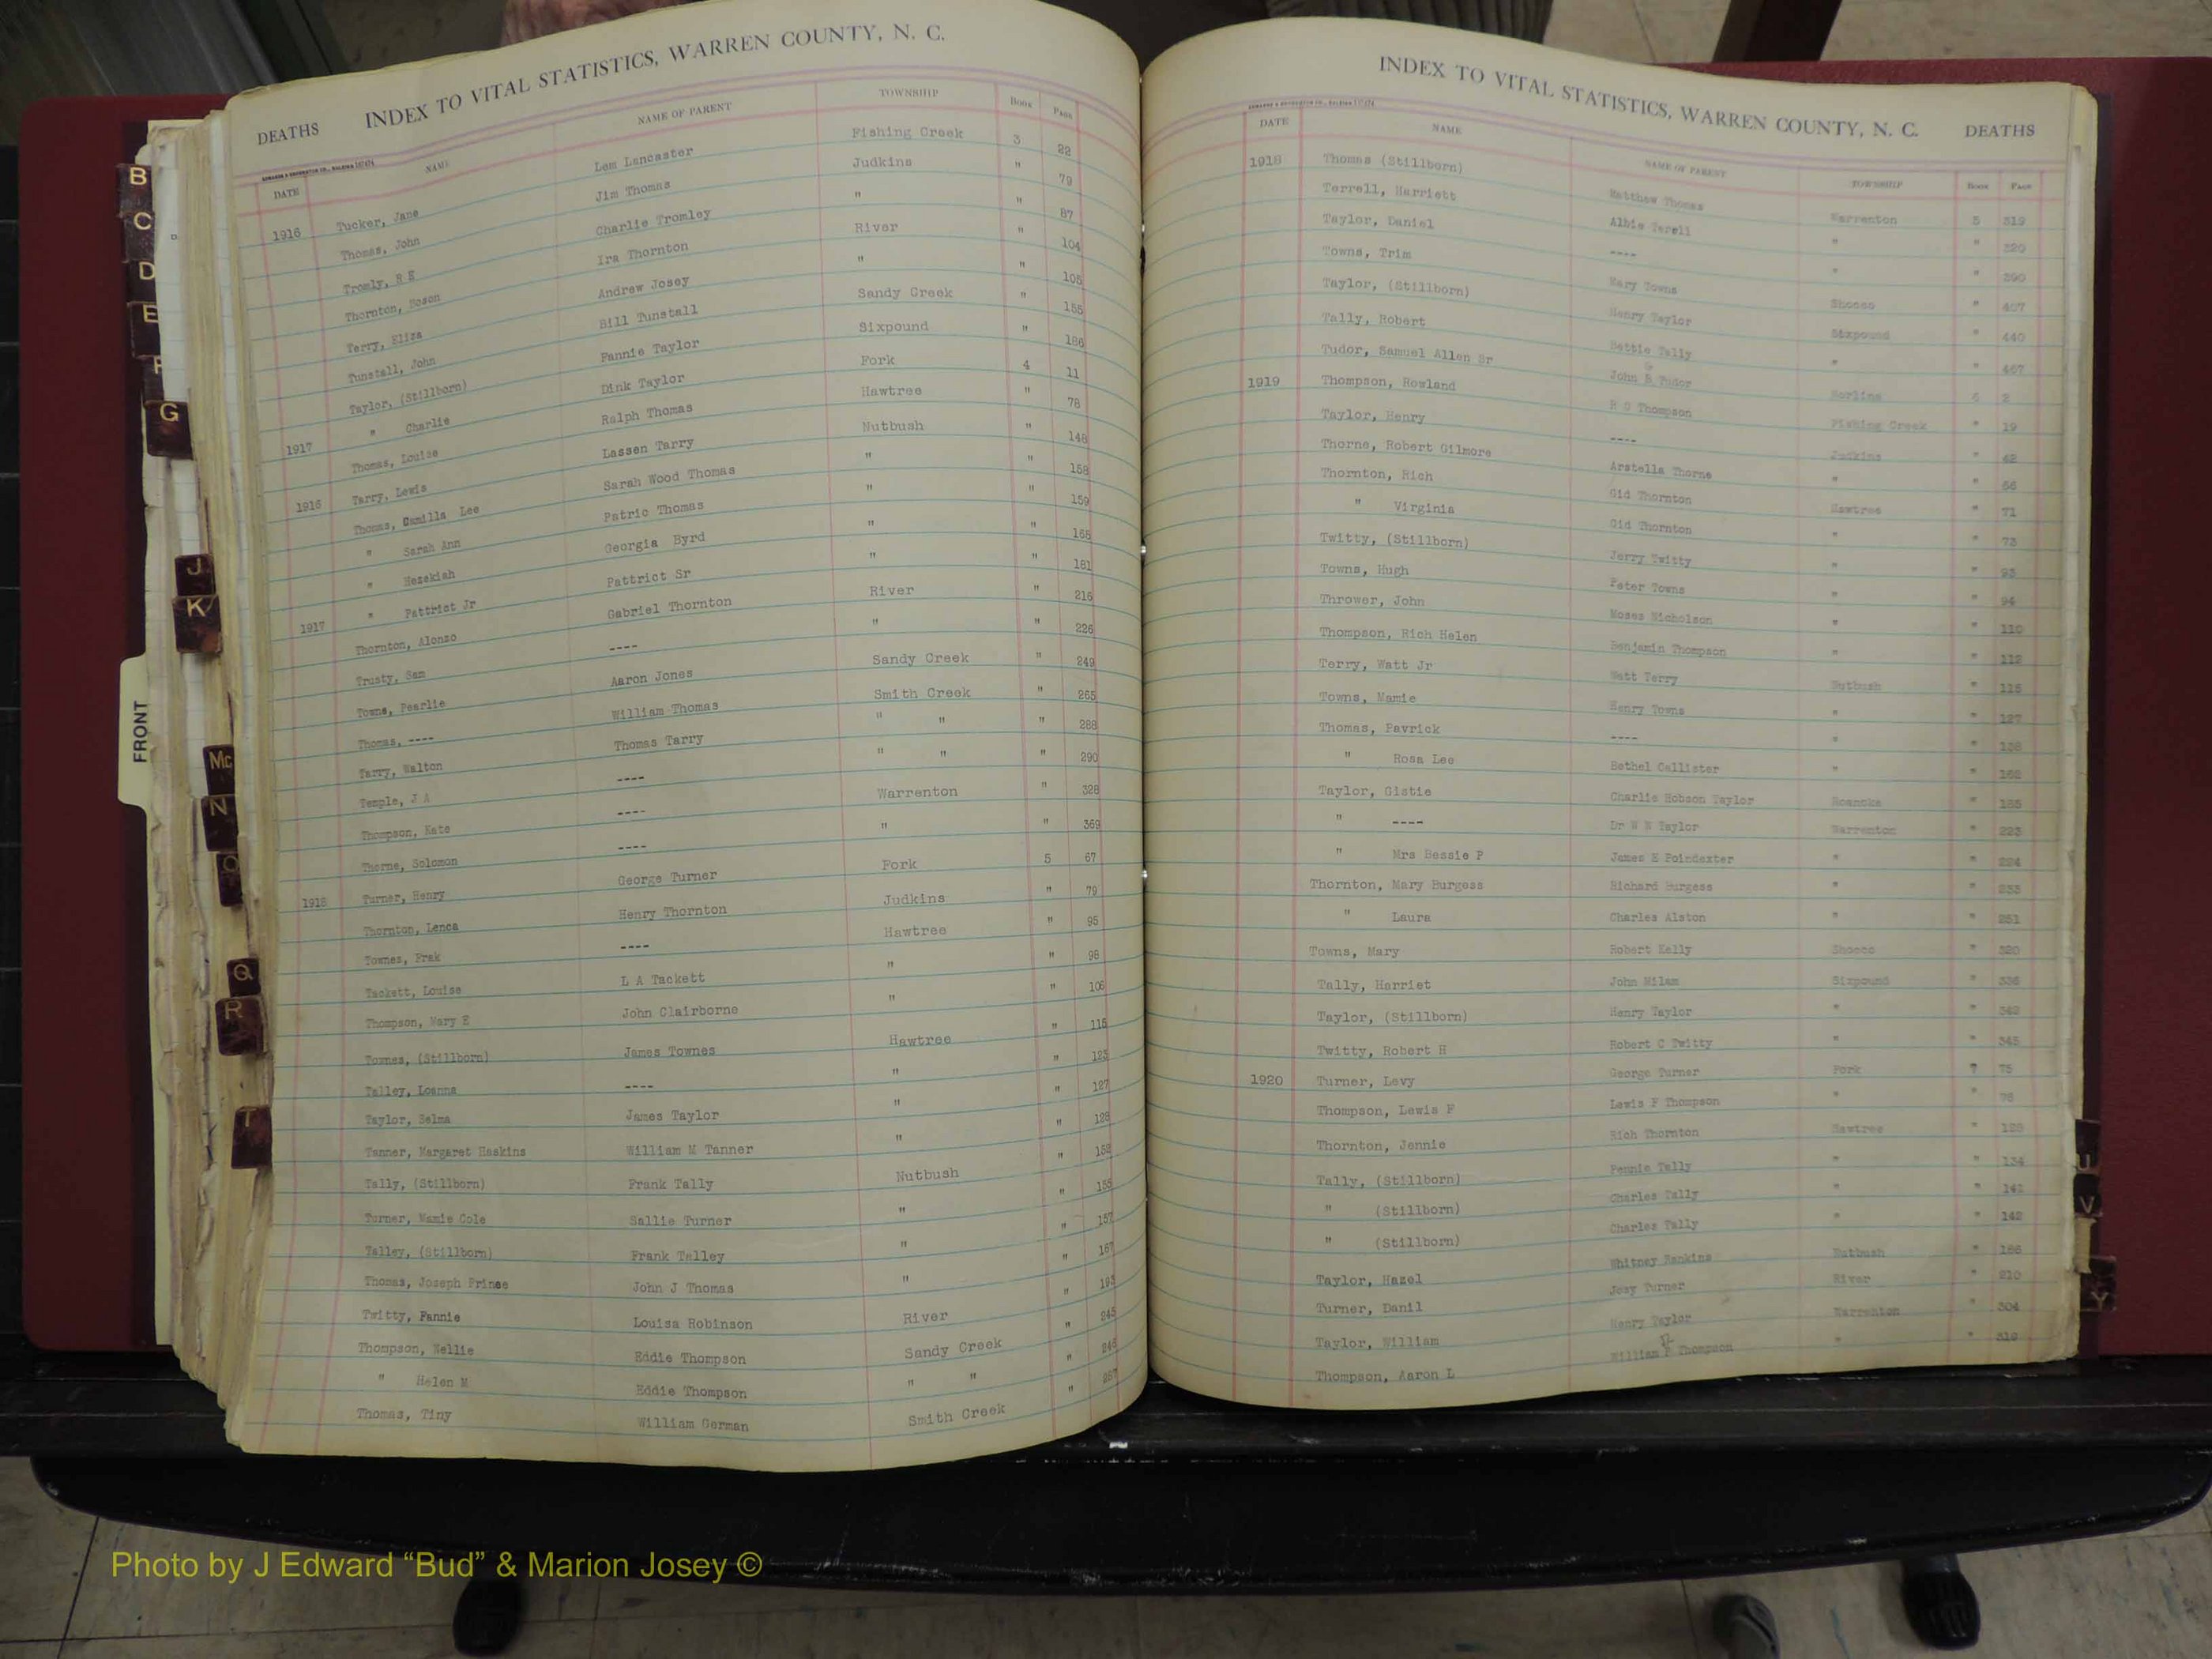 DEATHS INDEX TO VITAL STATISTICS, WARREN COUNTY, N. C.
DATE NAME NAME OF PARENT TOWNSHIP Book Page
1916 Tucker, Jane Lem Lancaster Fishing Creek 3 22
Thomas, John Jim Thomas Judkins " 79
Tromly, R E Charlie Tromley " " 87
Thornton, Boson Ira Thornton River " 104
Terry, Eliza Andrew Josey " " 105
Tunstall, John Bill Tunstall Sandy Creek " 155
Taylor, (Stillborn) Fannie Taylor Sixpound " 186
" Charlie Dink Taylor Fork 4 11
1917 Thomas, Louise Ralph Thomas Hawtree " 78
Tarry, Lewis Lassen Tarry Nutbush " 148
1916 Thomas, Camilla Lee Sarah Wood Thomas " " 158
" Sarah Ann Patric Thomas " " 159
" Hezekiah Georgia Byrd " " 165
" Pattrict Jr Pattrict Sr " " 181
1917 Thornton, Alonzo Gabriel Thornton River " 216
Trusty, Sam ---- " " 226
Towns, Pearlie Aaron Jones Sandy Creek " 249
Thomas, ---- William Thomas Smith Creek " 265
Tarry, Walton Thomas Tarry " " " 288
Temple, J A ---- " " " 290
Thompson, Kate ---- Warrenton " 328
Thorne, Solomon ---- " " 369
1918 Turner, Henry George Turner Fork 5 67
Thornton, Lenca Henry Thornton Judkins " 79
Townes, Frak ---- Hawtree " 95
Tackett, Louise L A Tackett " " 98
Thompson, Mary E John Clairborne " " 106
Townes, (Stillborn) James Townes Hawtree " 115
Talley, Loanna ---- " " 123
Taylor, Selma James Taylor " " 127
Tanner, Margaret Haskins William M Tanner " " 128
Tally, (Stillborn) Frank Tally Nutbush " 152
Turner, Mamie Cole Sallie Turner " " 155
Talley, (Stillborn) Frank Talley " " 157
Thomas, Joseph Prince John J Thomas " " 167
Twitty, Fannie Louisa Robinson River " 193
Thompson, Nellie Eddie Thompson Sandy Creek " 245
" Helen M Eddie Thompson " " " 246
Thomas, Tiny William German Smith Creek " 287
INDEX TO VITAL STATISTICS, WARREN COUNTY, N. C. DEATHS
DATE NAME NAME OF PARENT TOWNSHIP Book Page
1918 Thomas (Stillborn) Matthew Thomas Warrenton 5 319
Terrell, Harriett Albie Terell " " 320
Taylor, Daniel ---- " " 390
Towns, Trim Mary Towns Shocco " 407
Taylor, (Stillborn) Henry Taylor Sixpound " 440
Tally, Robert Bettie Tally " " 467
Tudor, Samuel Allen Sr John Tudor Norlina 6 2
1919 Thompson, Rowland R O Thompson Fishing Creek " 19
Taylor, Henry ---- Judkins " 42
Thorne, Robert Gilmore Arstella Thorne " " 56
Thornton, Rich Gid Thornton Hawtree " 71
" Virginia Gid Thornton " " 73
Twitty, (Stillborn) Jerry Twitty " " 93
Towns, Hugh Peter Towns " " 94
Thrower, John Moses Nicholson " " 110
Thompson, Rich Helen Benjamin Thompson " " 112
Terry, Watt Jr Watt Terry Nutbush " 115
Towns, Mamie Henry Towns " " 127
Thomas, Pavrick ---- " " 138
" Rosa Lee Bethel Callister " " 162
Taylor, Gistie Charlie Hobson Taylor Roanoke " 185
" ---- Dr W W Taylor Warrenton " 223
" Mrs Bessie P James E Poindexter " " 224
Thornton, Mary Burgess Richard Burgess " " 233
" Laura Charles Alston " " 251
Towns, Mary Robert Kelly Shocco " 320
Tally, Harriet John Milam Sixpound " 336
Taylor, (Stillborn) Henry Taylor " " 342
Twitty, Robert H Robert C Twitty " " 345
1920 Turner, Levy George Turner Fork 7 75
Thompson, Lewis F Lewis F Thompson " " 76
Thornton, Jennie Rich Thornton Hawtree " 129
Tally, (Stillborn) Pennie Tally " " 134
" (Stillborn) Charles Tally " " 141
" (Stillborn) Charles Tally " " 142
Taylor, Hazel Whitney Hankins Nutbush " 166
Turner, Danil Josy Turner River " 210
Taylor, William Henry Taylor Warrenton " 304
Thompson, Aaron L William Thompson " " 318
B
C
D
E
F
G
J
K
FRONT
Mc
N
O
Q
R
T
U
V
Y
Photo by J Edward “Bud” & Marion Josey ©